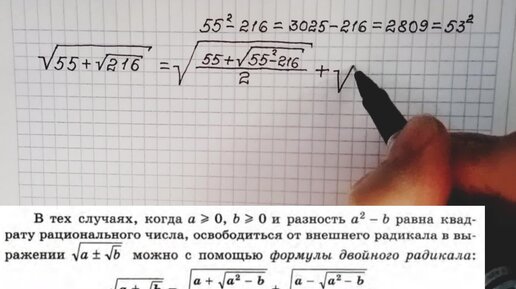 55² - 216 = 3025 - 216 = 2809 = 53²
√(55 + √216) = √((55 + √(55² - 216))/2) + √
В тех случаях, когда a ⩾ 0, b ⩾ 0 и разность a² − b равна квад-
рату рационального числа, освободиться от внешнего радикала в вы-
ражении √(a ± √b) можно с помощью формулы двойного радикала:
√(a ± √b) = √((a + √(a² − b)) ± √((a − √(a² − b))